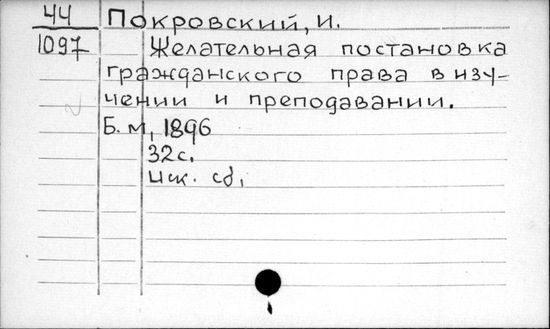 44
1097
Покровский, И.
Желательная постановка
гражданского права в изу-
чении и преподавании.
Б.м, 1896
32с.
Иск. сб,